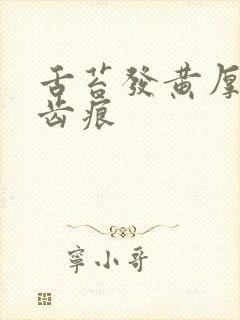 舌苔發黄厚
齿痕
寧小哥